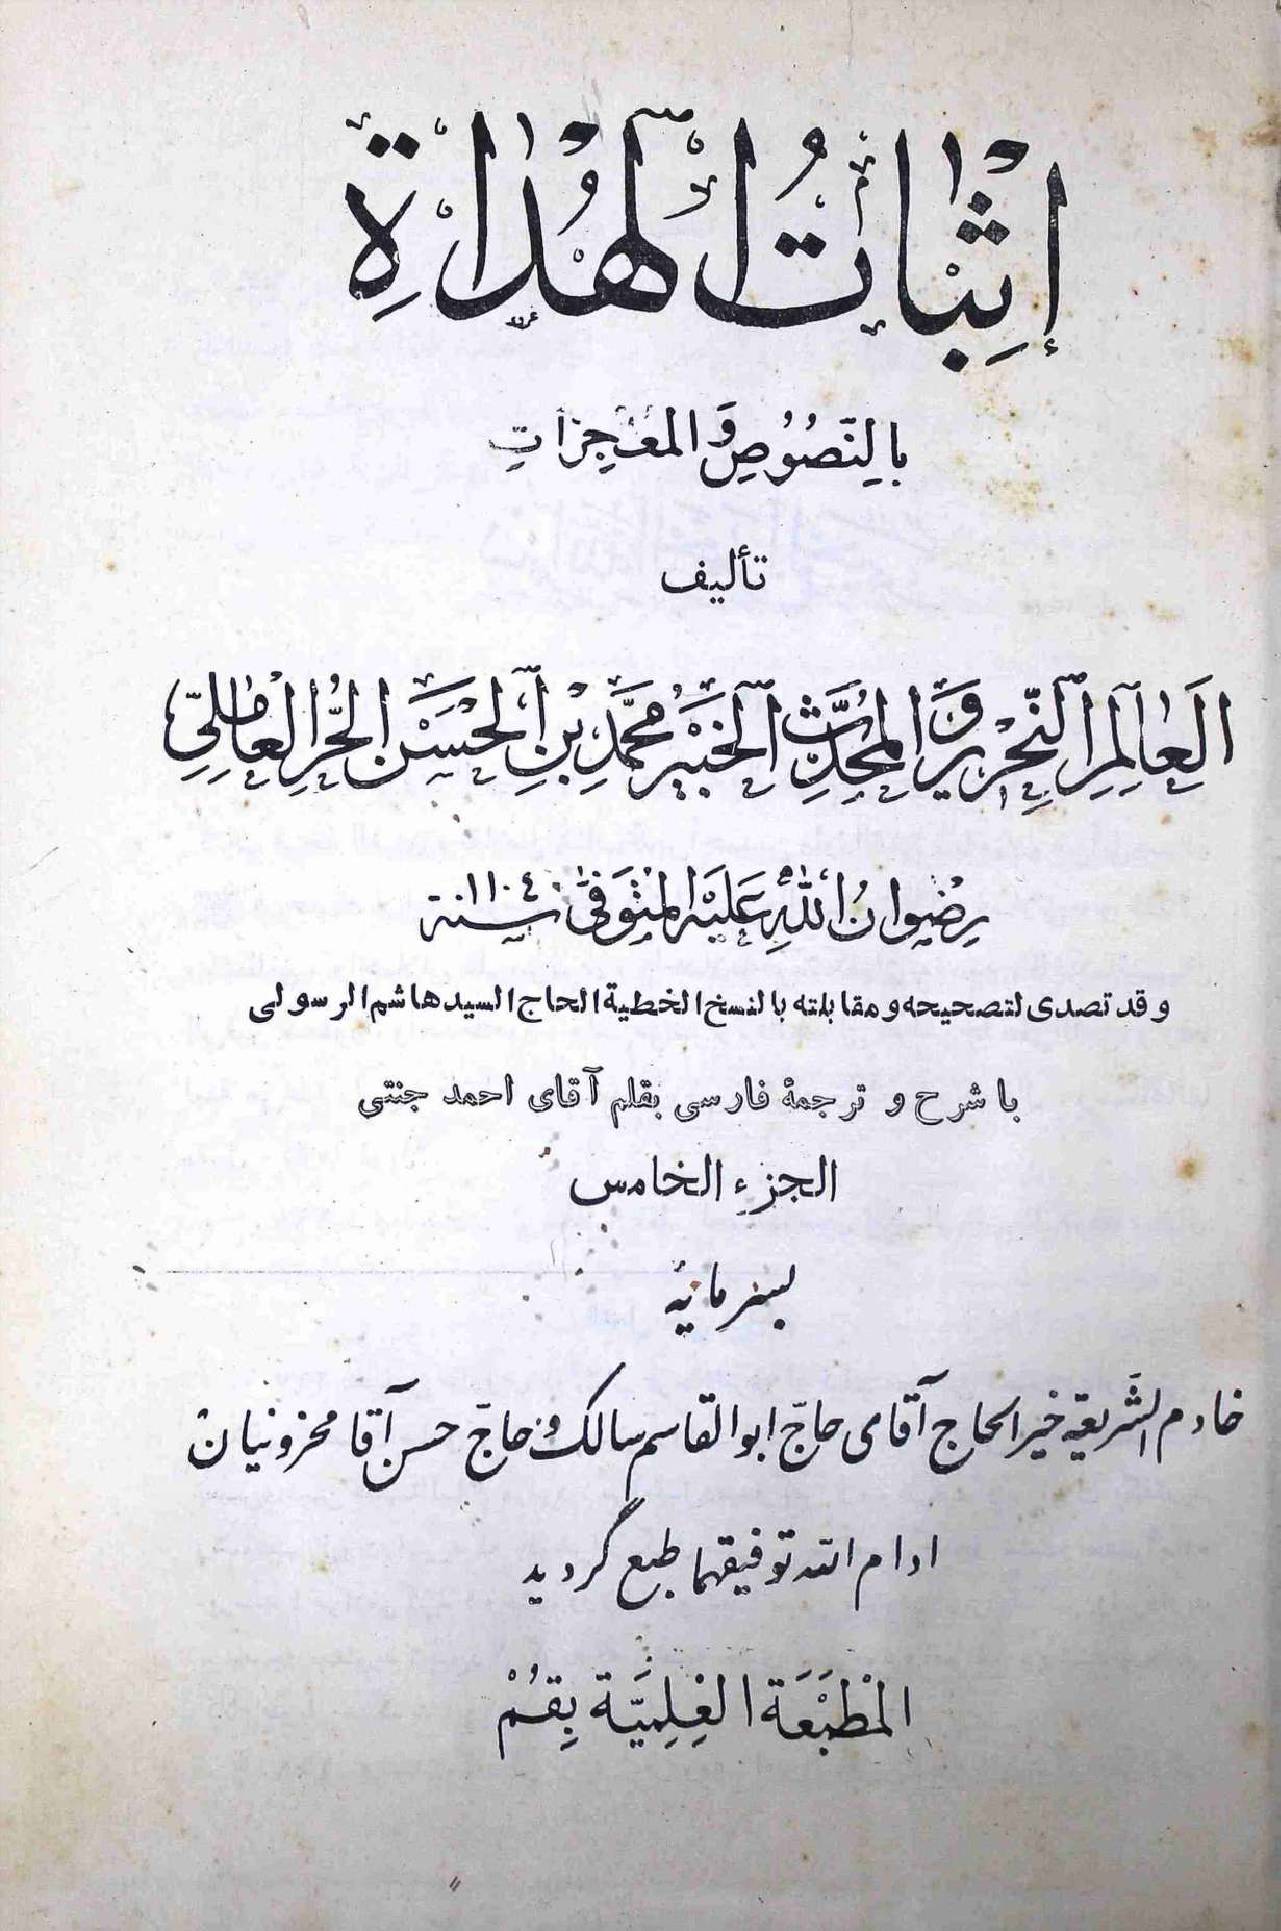 إِثْبَاتُ الْهُدَاةِ
بِالنُّصُوصِ وَالْمُعْجِزَاتِ
تأليف
اَلْعَالِمِ النِّحْرِيرِ وَالْمُحَدِّثِ الْخَبِيرِ مُحَمَّدِ بْنِ الْحَسَنِ الْحُرِّ الْعَامِلِيِّ
رِضْوَانُ اللهِ عَلَيْهِ الْمُتَوَفّٰى سنة ١١٠٤
وقد تصدى لتصحيحه ومقابلته بالنسخ الخطية الحاج السيد هاشم الرسولى
با شرح و ترجمهٔ فارسى بقلم آقاى احمد جنتى
الجزء الخامس
بسرمايهٔ
خادم الشَّريعة خير الحاج آقاى حاجّ ابوالقاسم سالك و حاجّ حسن آقا مخزونيان
ادام الله توفيقهما طبع گرديد
الْمَطْبَعَة الْعِلِمِيَّة بِقُمْ